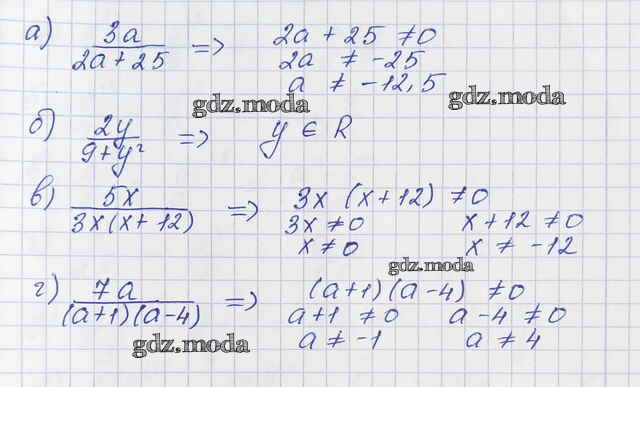 а) 3a / 2a + 25 => 2a + 25 ≠ 0
2a ≠ -25
a ≠ -12,5
gdz.moda
gdz.moda
б) 2y / 9 + y² => y ∈ R
в) 5x / 3x(x + 12) => 3x (x + 12) ≠ 0
3x ≠ 0 x + 12 ≠ 0
x ≠ 0 x ≠ -12
gdz.moda
г) 7a / (a+1)(a-4) => (a+1)(a-4) ≠ 0
a+1 ≠ 0 a-4 ≠ 0
a ≠ -1 a ≠ 4
gdz.moda